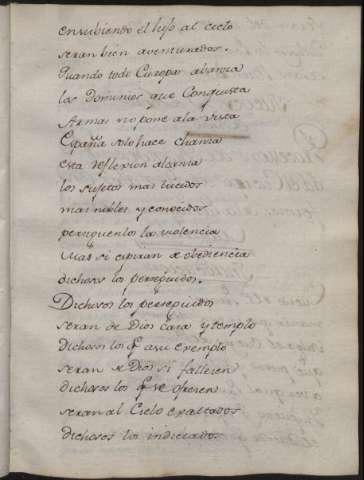 en subiendo el hijo al cielo
seran bien aventurados.
Quando toda Europa abanza
los Dominios que Conquista
Armas no pone a la vista
España solo hace chanza
esta reflexion alcanza
los sujetos mas lucidos
mas nobles y conocidos
persiguenlos la violencia
Mas si espiran de obediencia
dichosos los perseguidos.
Dichosos los perseguidos
seran de Dios casa y templo
Dichosos los q̃ a su exemplo
seran de Dios si fallecen
dichosos los q̃ se ofrecen
seran al Cielo exaltados
dichosos los indiciados